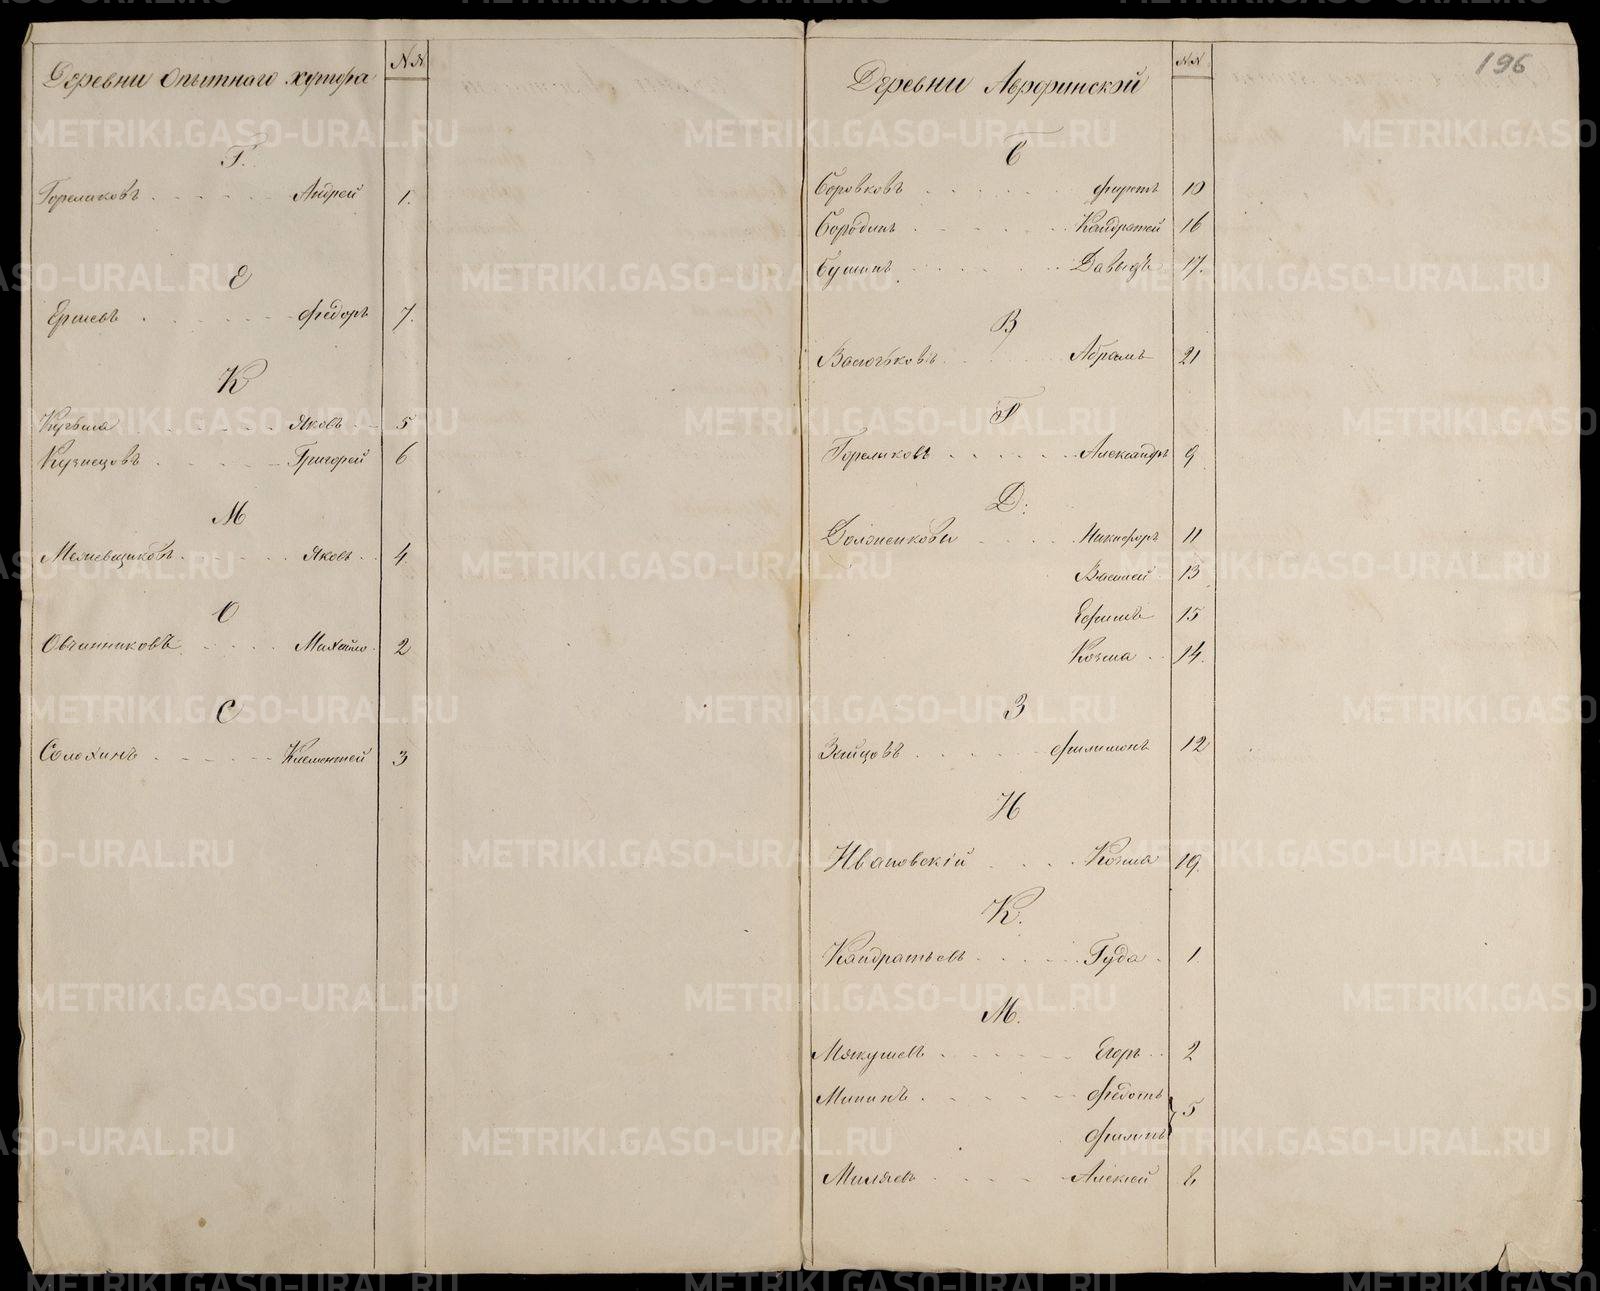 Деревни Опытнаго хутора
№№
Г.
Гореликовъ Андрей 1.
Е
Ершевъ Федоръ 7.
К
Кузьма Яковъ 5
Кузнецовъ Григорей 6
М
Межевщиковъ Яковъ 4.
О
Овчинниковъ Михайло 2
С
Солохинъ Клементей 3
196
Деревни
№№
Б
Боровковъ 10
Бородинъ Кандратей 16
Бушинъ Давыдъ 17.
В
Васючковъ Абрамъ 21
Г
Гореликовъ Александръ 9
Д.
Долженковы Никифоръ 11
Василей 13
Ефимъ 15
Козма 14.
З
Зайцовъ Филимонъ 12
И
Ивановскій Козма 19.
К.
Кандратьевъ Гуда 1
М.
Мякушевъ Егоръ 2
Мининъ Федотъ 5
Филипъ
Миляевъ Алексей 8
METRIKI.GASO-URAL.RU